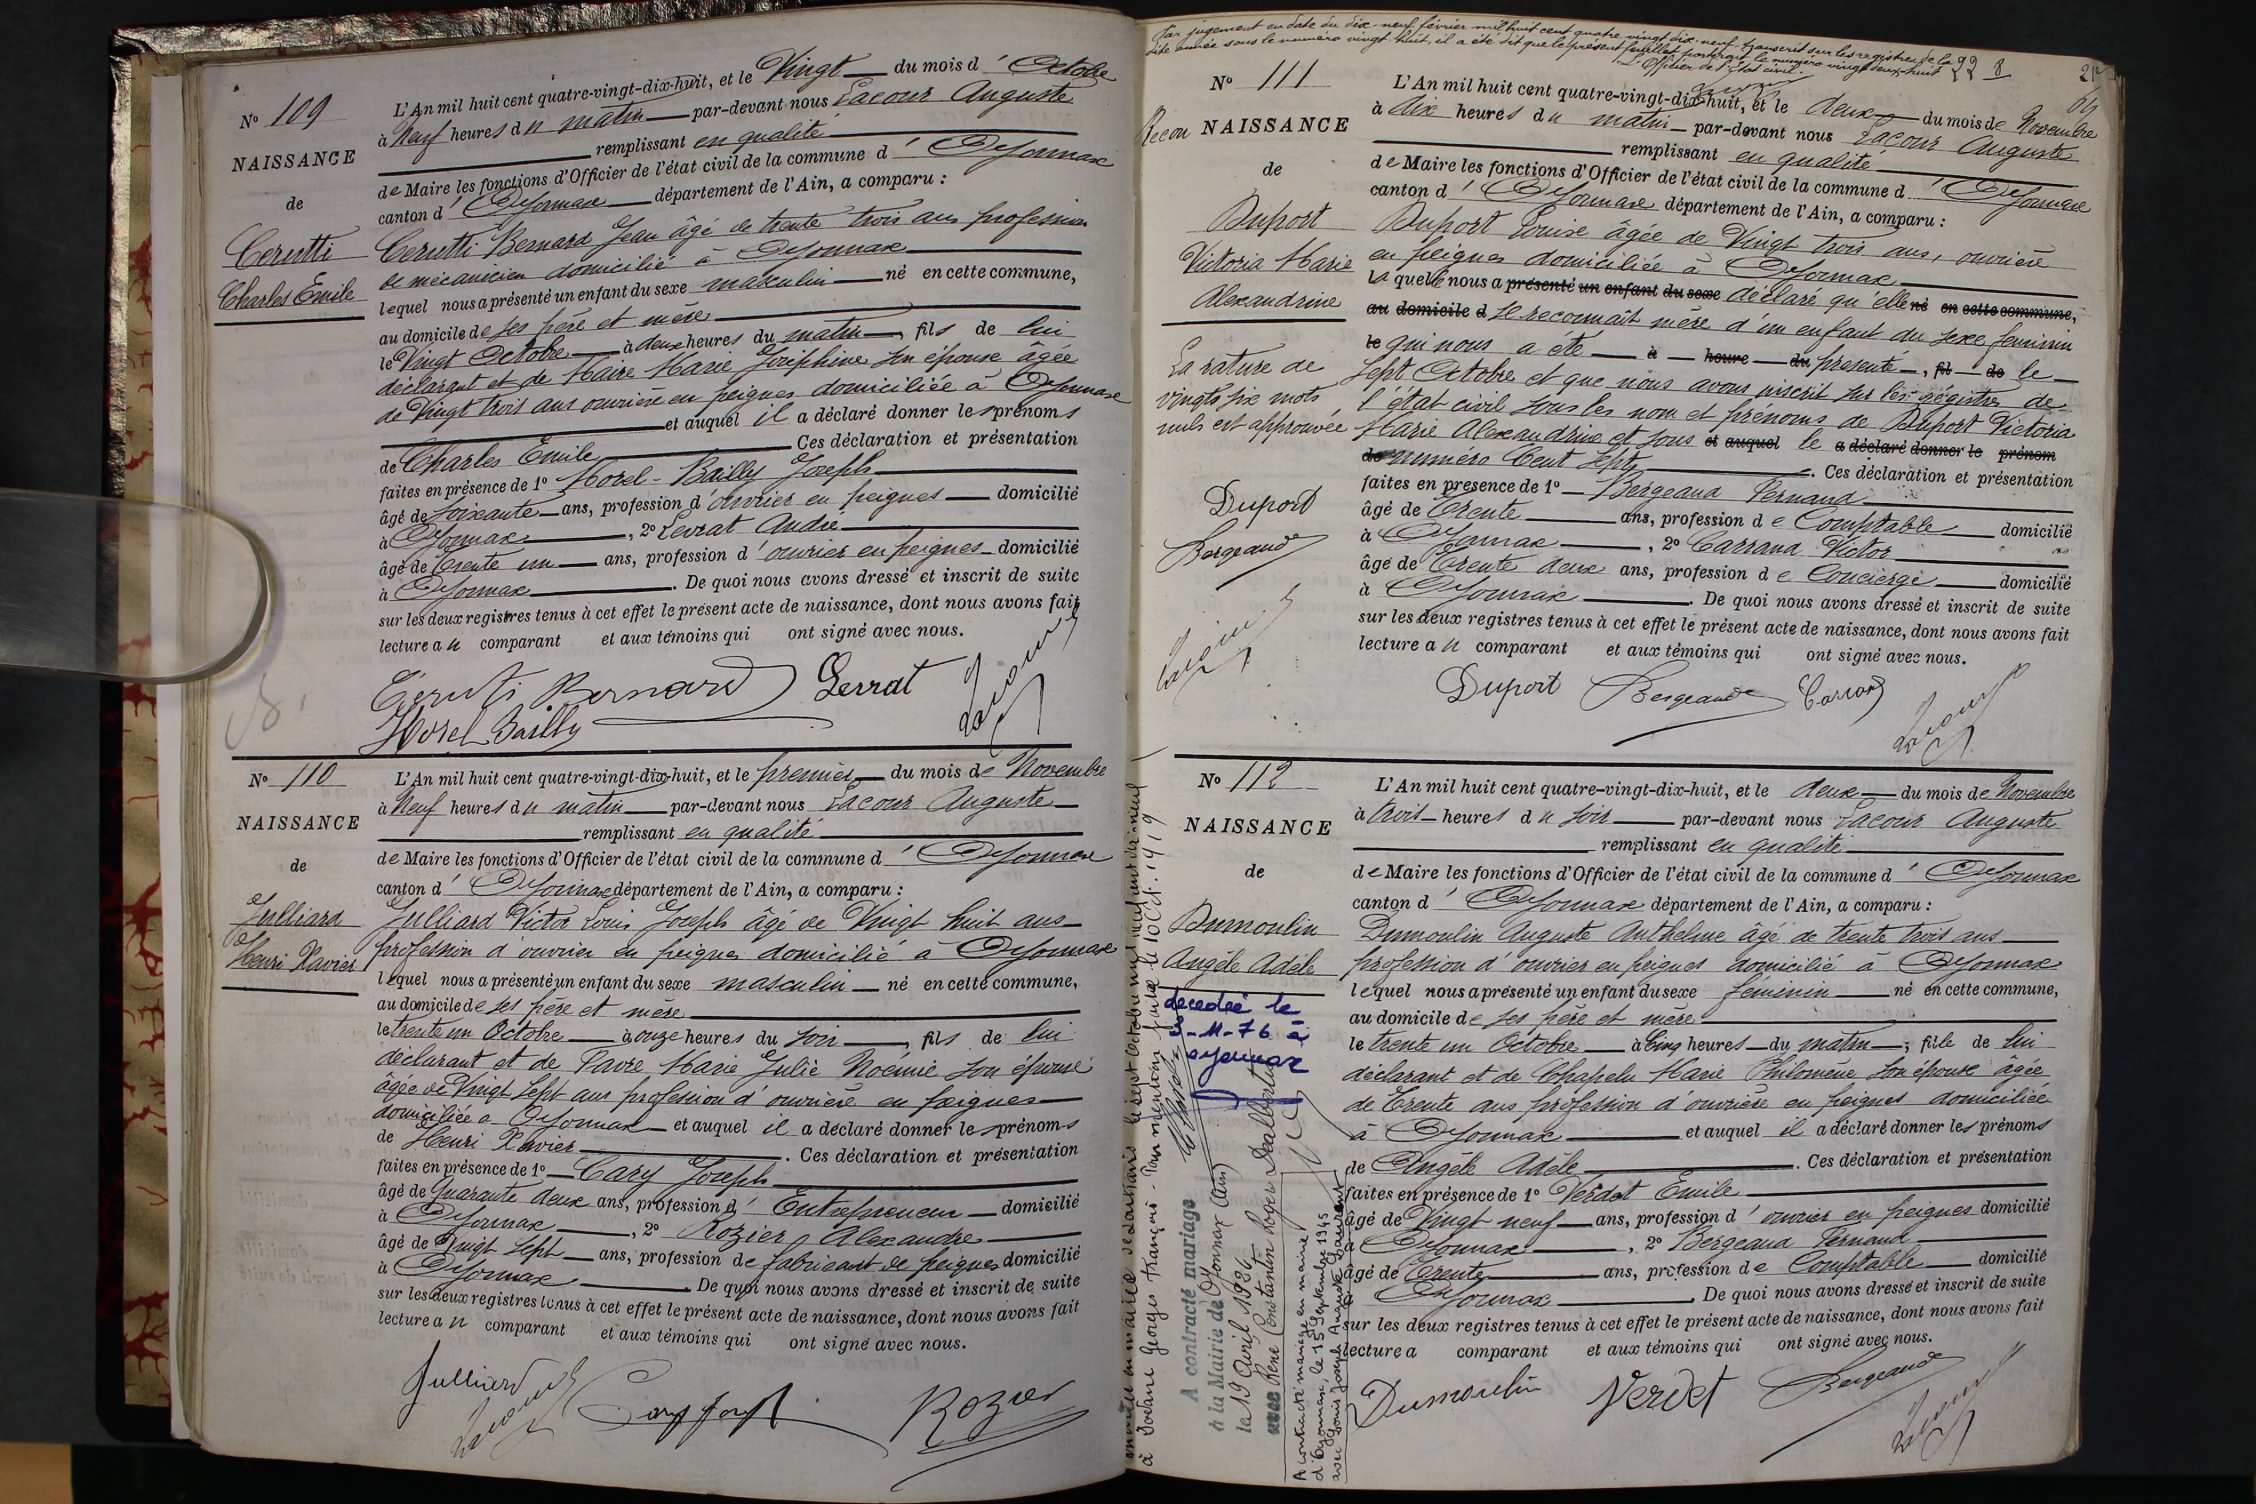 N° 109
NAISSANCE
de
Cerutti
Charles Emile
L'An mil huit cent quatre-vingt-dix-huit, et le Vingt du mois d' Octobre
à Neuf heures du matin par-devant nous Lacour Auguste
remplissant en qualité
de Maire les fonctions d'Officier de l'état civil de la commune d' Oyonnax
canton d' Oyonnax département de l'Ain, a comparu :
Cerutti Bernard Jean âgé de trente trois ans profession
de mécanicien domicilié à Oyonnax
lequel nous a présenté un enfant du sexe masculin né en cette commune,
au domicile de ses père et mère
le Vingt Octobre à deux heures du matin, fils de lui
déclarant et de Maire Marie Joséphine son épouse âgée
de Vingt trois ans ouvrière en peignes domiciliée à Oyonnax
et auquel il a déclaré donner les prénoms
de Charles Emile Ces déclaration et présentation
faites en présence de 1° Morel-Bailly Joseph
âgé de soixante ans, profession d'ouvrier en peignes domicilié
à Oyonnax, 2° Levrat André
âgé de Trente un ans, profession d'ouvrier en peignes domicilié
à Oyonnax. De quoi nous avons dressé et inscrit de suite
sur les deux registres tenus à cet effet le présent acte de naissance, dont nous avons fait
lecture au comparant et aux témoins qui ont signé avec nous.
Cerutti Bernard Levrat
Morel Bailly Lacour
N° 110
NAISSANCE
de
Julliard
Henri Xavier
L'An mil huit cent quatre-vingt-dix-huit, et le premier du mois de Novembre
à Neuf heures du matin par-devant nous Lacour Auguste
remplissant en qualité
de Maire les fonctions d'Officier de l'état civil de la commune d' Oyonnax
canton d' Oyonnax département de l'Ain, a comparu :
Julliard Victor Louis Joseph âgé de Vingt huit ans
profession d'ouvrier en peignes domicilié à Oyonnax
lequel nous a présenté un enfant du sexe masculin né en cette commune,
au domicile de ses père et mère
le trente un Octobre à onze heures du soir, fils de lui
déclarant et de Marie Julie Noémie son épouse
âgée de Vingt sept ans profession d'ouvrière en peignes
domiciliée à Oyonnax et auquel il a déclaré donner les prénoms
de Henri Xavier. Ces déclaration et présentation
faites en présence de 1° Cary Joseph
âgé de quarante deux ans, profession d' Entrepreneur domicilié
à Oyonnax, 2° Rozier Alexandre
âgé de Vingt sept ans, profession de fabricant de peignes domicilié
à Oyonnax. De quoi nous avons dressé et inscrit de suite
sur les deux registres tenus à cet effet le présent acte de naissance, dont nous avons fait
lecture au comparant et aux témoins qui ont signé avec nous.
Julliard
Lacour Cary Joseph Rozier
Par jugement en date du dix-neuf février mil huit cent quatre vingt dix-neuf transcrit sur les registres de la
dite année sous le numéro vingt-huit, il a été dit que le présent feuillet portera le numéro vingt deux-huit
L'Officier de l'état civil.
22 8
N° 111
Recon NAISSANCE
de
Duport
Victoria Marie
Alexandrine
La rature de
vingt six mots
nuls est approuvée
Duport
Bergeaud
Lacour
L'An mil huit cent quatre-vingt-dix-huit, et le deux du mois de Novembre
à dix heures du matin par-devant nous Lacour Auguste
remplissant en qualité
de Maire les fonctions d'Officier de l'état civil de la commune d' Oyonnax
canton d' Oyonnax département de l'Ain, a comparu :
Duport Louise âgée de Vingt trois ans, ouvrière
en peignes domiciliée à Oyonnax
laquelle nous a présenté un enfant du sexe déclaré qu'elle né en cette commune,
au domicile d se reconnaît mère d'un enfant du sexe féminin
le qui nous a été à heure du présenté, fil de le
sept Octobre et que nous avons inscrit sur les régistres de
l'état civil sous les nom et prénoms de Duport Victoria
Marie Alexandrine et sous et auquel le a déclaré donner le prénom
de numéro Cent sept. Ces déclaration et présentation
faites en présence de 1° Bergeaud Fernand
âgé de Trente ans, profession de Comptable domicilié
à Oyonnax, 2° Carrand Victor
âgé de Trente deux ans, profession de Concierge domicilié
à Oyonnax. De quoi nous avons dressé et inscrit de suite
sur les deux registres tenus à cet effet le présent acte de naissance, dont nous avons fait
lecture au comparant et aux témoins qui ont signé avec nous.
Duport Bergeaud Carrand
Lacour
N° 112
NAISSANCE
de
Dumoulin
Angèle Adèle
décédée le
3-11-76 à
Oyonnax
L'An mil huit cent quatre-vingt-dix-huit, et le deux du mois de Novembre
à trois heures du soir par-devant nous Lacour Auguste
remplissant en qualité
de Maire les fonctions d'Officier de l'état civil de la commune d' Oyonnax
canton d' Oyonnax département de l'Ain, a comparu :
Dumoulin Auguste Anthelme âgé de trente trois ans
profession d'ouvrier en peignes domicilié à Oyonnax
lequel nous a présenté un enfant du sexe féminin né en cette commune,
au domicile de ses père et mère
le trente un Octobre à Cinq heures du matin, fille de lui
déclarant et de Chapelu Marie Philomène son épouse âgée
de Trente ans profession d'ouvrière en peignes domiciliée
à Oyonnax et auquel il a déclaré donner les prénoms
de Angèle Adèle. Ces déclaration et présentation
faites en présence de 1° Verdet Emile
âgé de Vingt neuf ans, profession d'ouvrier en peignes domicilié
à Oyonnax, 2° Bergeaud Fernand
âgé de Trente ans, profession de Comptable domicilié
à Oyonnax. De quoi nous avons dressé et inscrit de suite
sur les deux registres tenus à cet effet le présent acte de naissance, dont nous avons fait
lecture a comparant et aux témoins qui ont signé avec nous.
Dumoulin Verdet Bergeaud
Lacour
à Georges François. Pour mention faite le 10 Oct. 1919
A contracté mariage
à la Mairie de Oyonnax (Ain)
le 19 avril 1926
avec René Constantin Roger Dealberto
A contracté mariage en mairie
d'Oyonnax, le 15 Septembre 1945
avec Louis Joseph Auguste Laurent